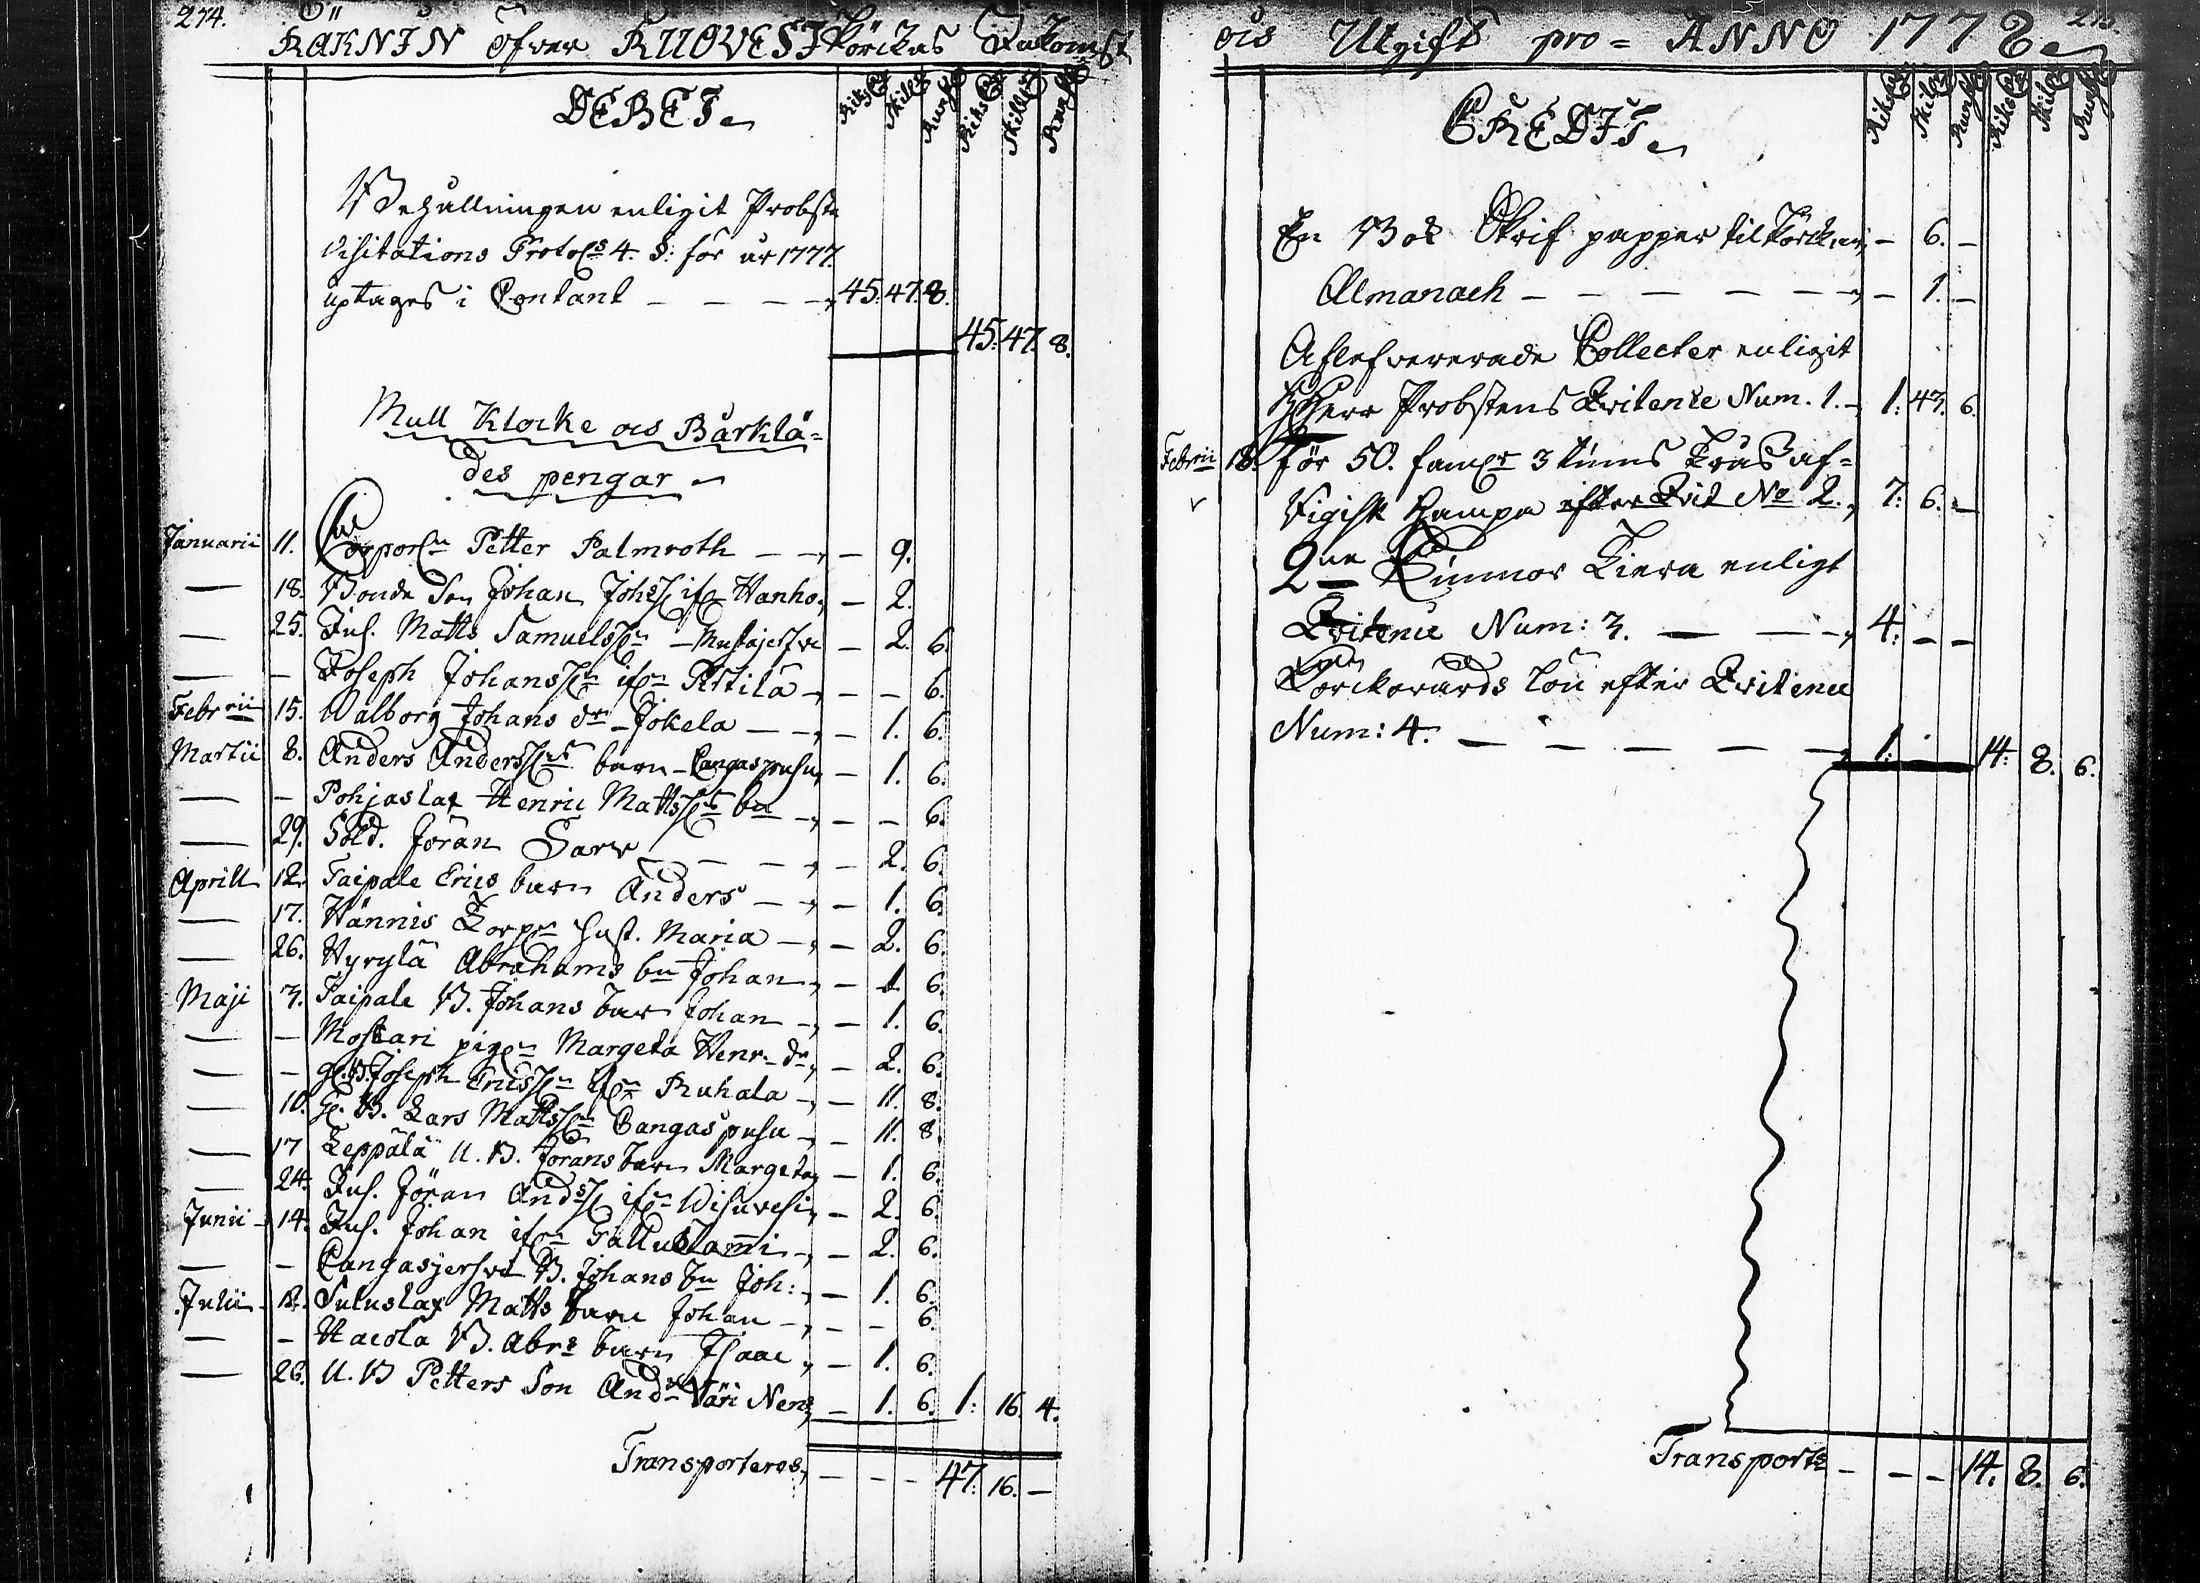 274.
RÄKNIN öfver RUOVESI Körckas Inkomst
DEBET
Riks Skill Runst Riks Skill Runst
Behållningen enligit Probste
Visitations Protoc 4. §: för år 1777.
uptages i Contant — — — — 45. 47. 8.
45. 47. 8.
Mull Klocke och Bårklä=
des pengar
Januarii 11. Corporn Petter Palmroth — — — 9.
— 18. Bonde Son Johan Johss ifrn Hanho — 2.
— 25. Inh. Matts Samuelssn — Mustajerfvi — 2. 6.
— — Joseph Johanssn ifrn Pittilä — — — 6.
Febrrii 15. Walborg Johans dr — Jokela — — — 1. 6.
Martii 8. Anders Anderss barn — Cangaspusu — 1. 6.
— — Pohjaslax Henric Mattss bn — — — 6.
— 29. Sold. Jöran Sarv — — — — 2. 6.
Aprill 12. Taipale Erics barn Anders — — — 1. 6.
— 17. Hännis Korpr Hust. Maria — — 2. 6.
— 26. Hyrylä Abrahams bn Johan — 1. 6.
Maji 3. Taipale B. Johans barn Johan — — 1. 6.
— — Moskari pign Margeta Henr. dr — 2. 6.
— — gl. B. Joseph Ericssn ifrn Ruhala — — 11. 8.
— 10. Gl. B. Lars Mattssn Cangaspusu — — 11. 8.
— 17 Leppälä U. B. Jörans barn Margeta — 1. 6.
— 24. Inh. Jöran Andss ifrn Wisuvesi — 2. 6.
Junii 14. Inh. Johan ifrn — — 2. 6.
— — Cangasjerfvi B. Johans bn Joh: — 1. 6.
Julii 12. Suluslax Matts barn Johan — — — 6.
— — Hacola B. Abrs barn Isaac — 1. 6.
— 26. U. B Petters Son Andr Väri Nens — 1. 6. 1. 16. 4.
Transporteras — — — 47. 16. —
och Utgift pro = ANNO 1778.
275.
CREDIT
Riks Skil Runst Riks Skil Runst
En Bok Skrif papper til Körckan — 6. —
Almanach — — — — — — — 1. —
Aflefvererade Collecter enligit
HHerr Probstens Qvitence Num. 1. — 1. 43. 6.
Febrrii 18. för 50. famnr 3 tums af=
Vigisk Hampa efter Qvit No 2. 7. 6. —
2ne Tunnor Tiera enligt
Qvitence Num: 3. — — — 4. — —
Körckovards lön efter Qvitence
Num: 4. — — — — — 1. — — 14. 8. 6.
Transports — — — 14. 8. 6.